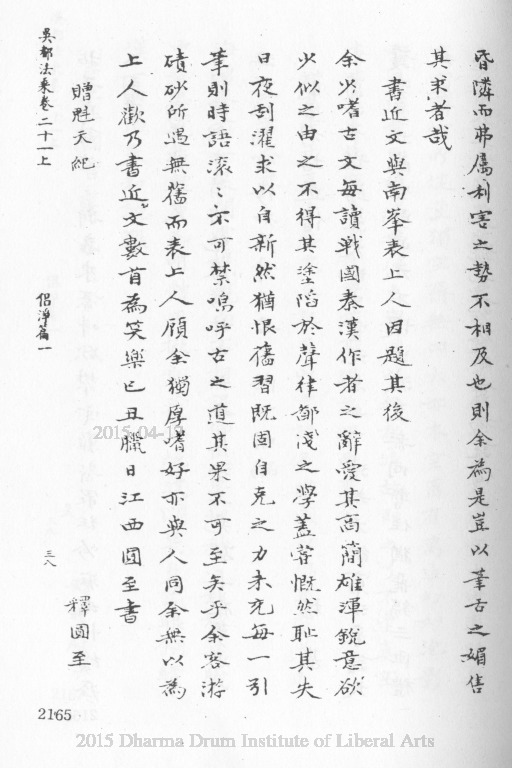 昏隣而弗属利害之勢不相及也則余為是豈以筆舌之媚售
其求者哉
書近文與南峯表上人因題其後
余少嗜古文每讀戰國秦漢作者之辭愛其高簡雄渾銳意欲
少似之由之不得其塗陷於聲律鄙淺之學蓋嘗慨然耻其失
日夜刮濯求以自新然猶恨舊習既固自克之力未充每一引
筆則時語滚〻示可禁嗚呼古之道其果不可至矣乎余客游
磧砂所遇無舊而表上人頋余獨厚嗜好亦與人同余無以為
上人歡乃書近文數首為笑樂已丑臘日江西圓至書
贈魁天紀
釋圓至
吳都法乘卷二十一上
侣淨篇一
三八
2165
2015-04-19
2015 Dharma Drum Institute of Liberal Arts